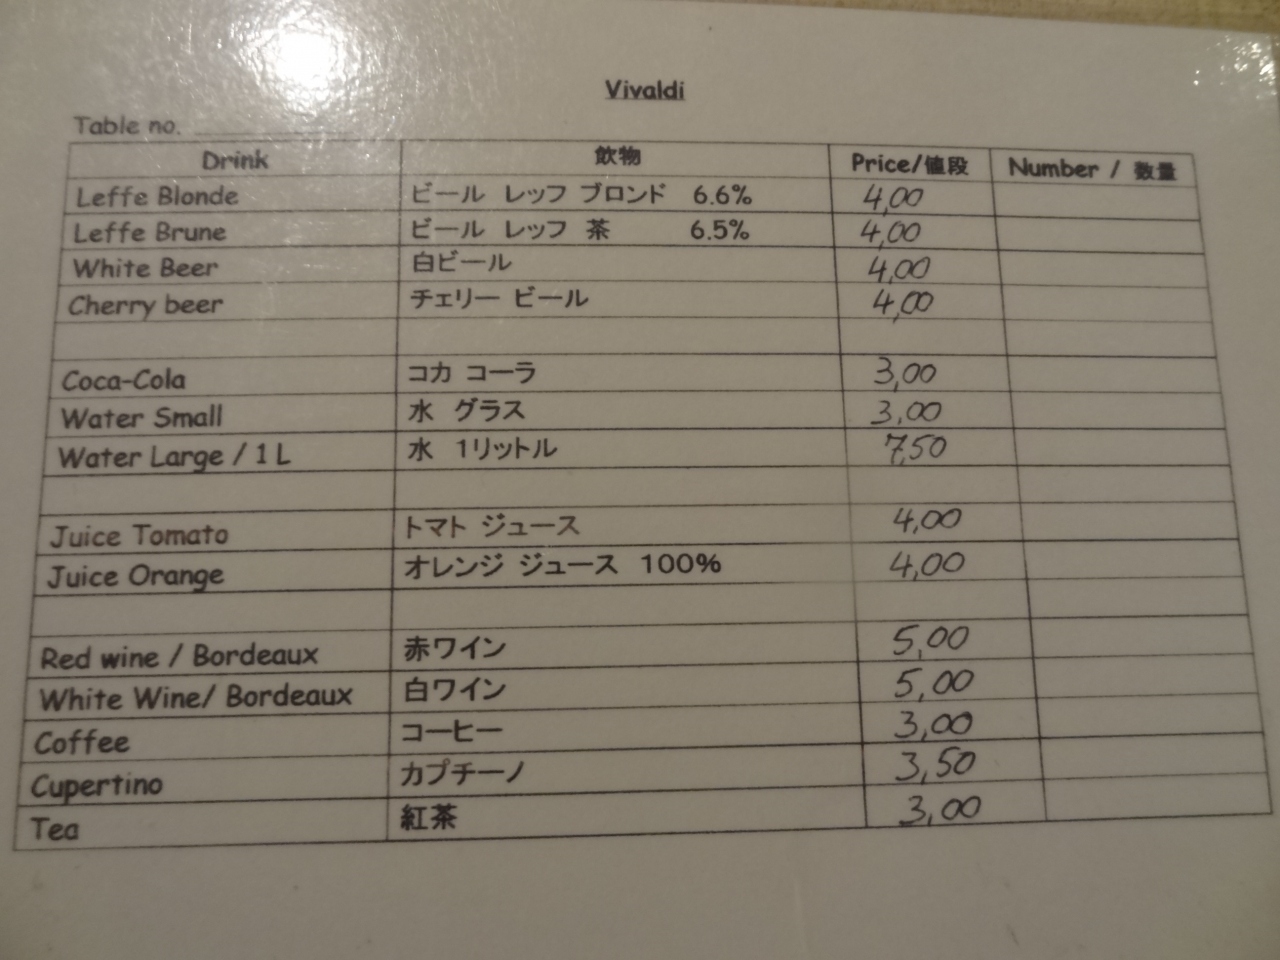 Vivaldi
Table no.
Drink 飲物 Price/値段 Number / 数量
Leffe Blonde ビール レッフ ブロンド 6.6% 4,00
Leffe Brune ビール レッフ 茶 6.5% 4,00
White Beer 白ビール 4,00
Cherry beer チェリー ビール 4,00
Coca-Cola コカ コーラ 3,00
Water Small 水 グラス 3,00
Water Large / 1 L 水 1リットル 7,50
Juice Tomato トマト ジュース 4,00
Juice Orange オレンジ ジュース 100% 4,00
Red wine / Bordeaux 赤ワイン 5,00
White Wine/ Bordeaux 白ワイン 5,00
Coffee コーヒー 3,00
Cupertino カプチーノ 3,50
Tea 紅茶 3,00